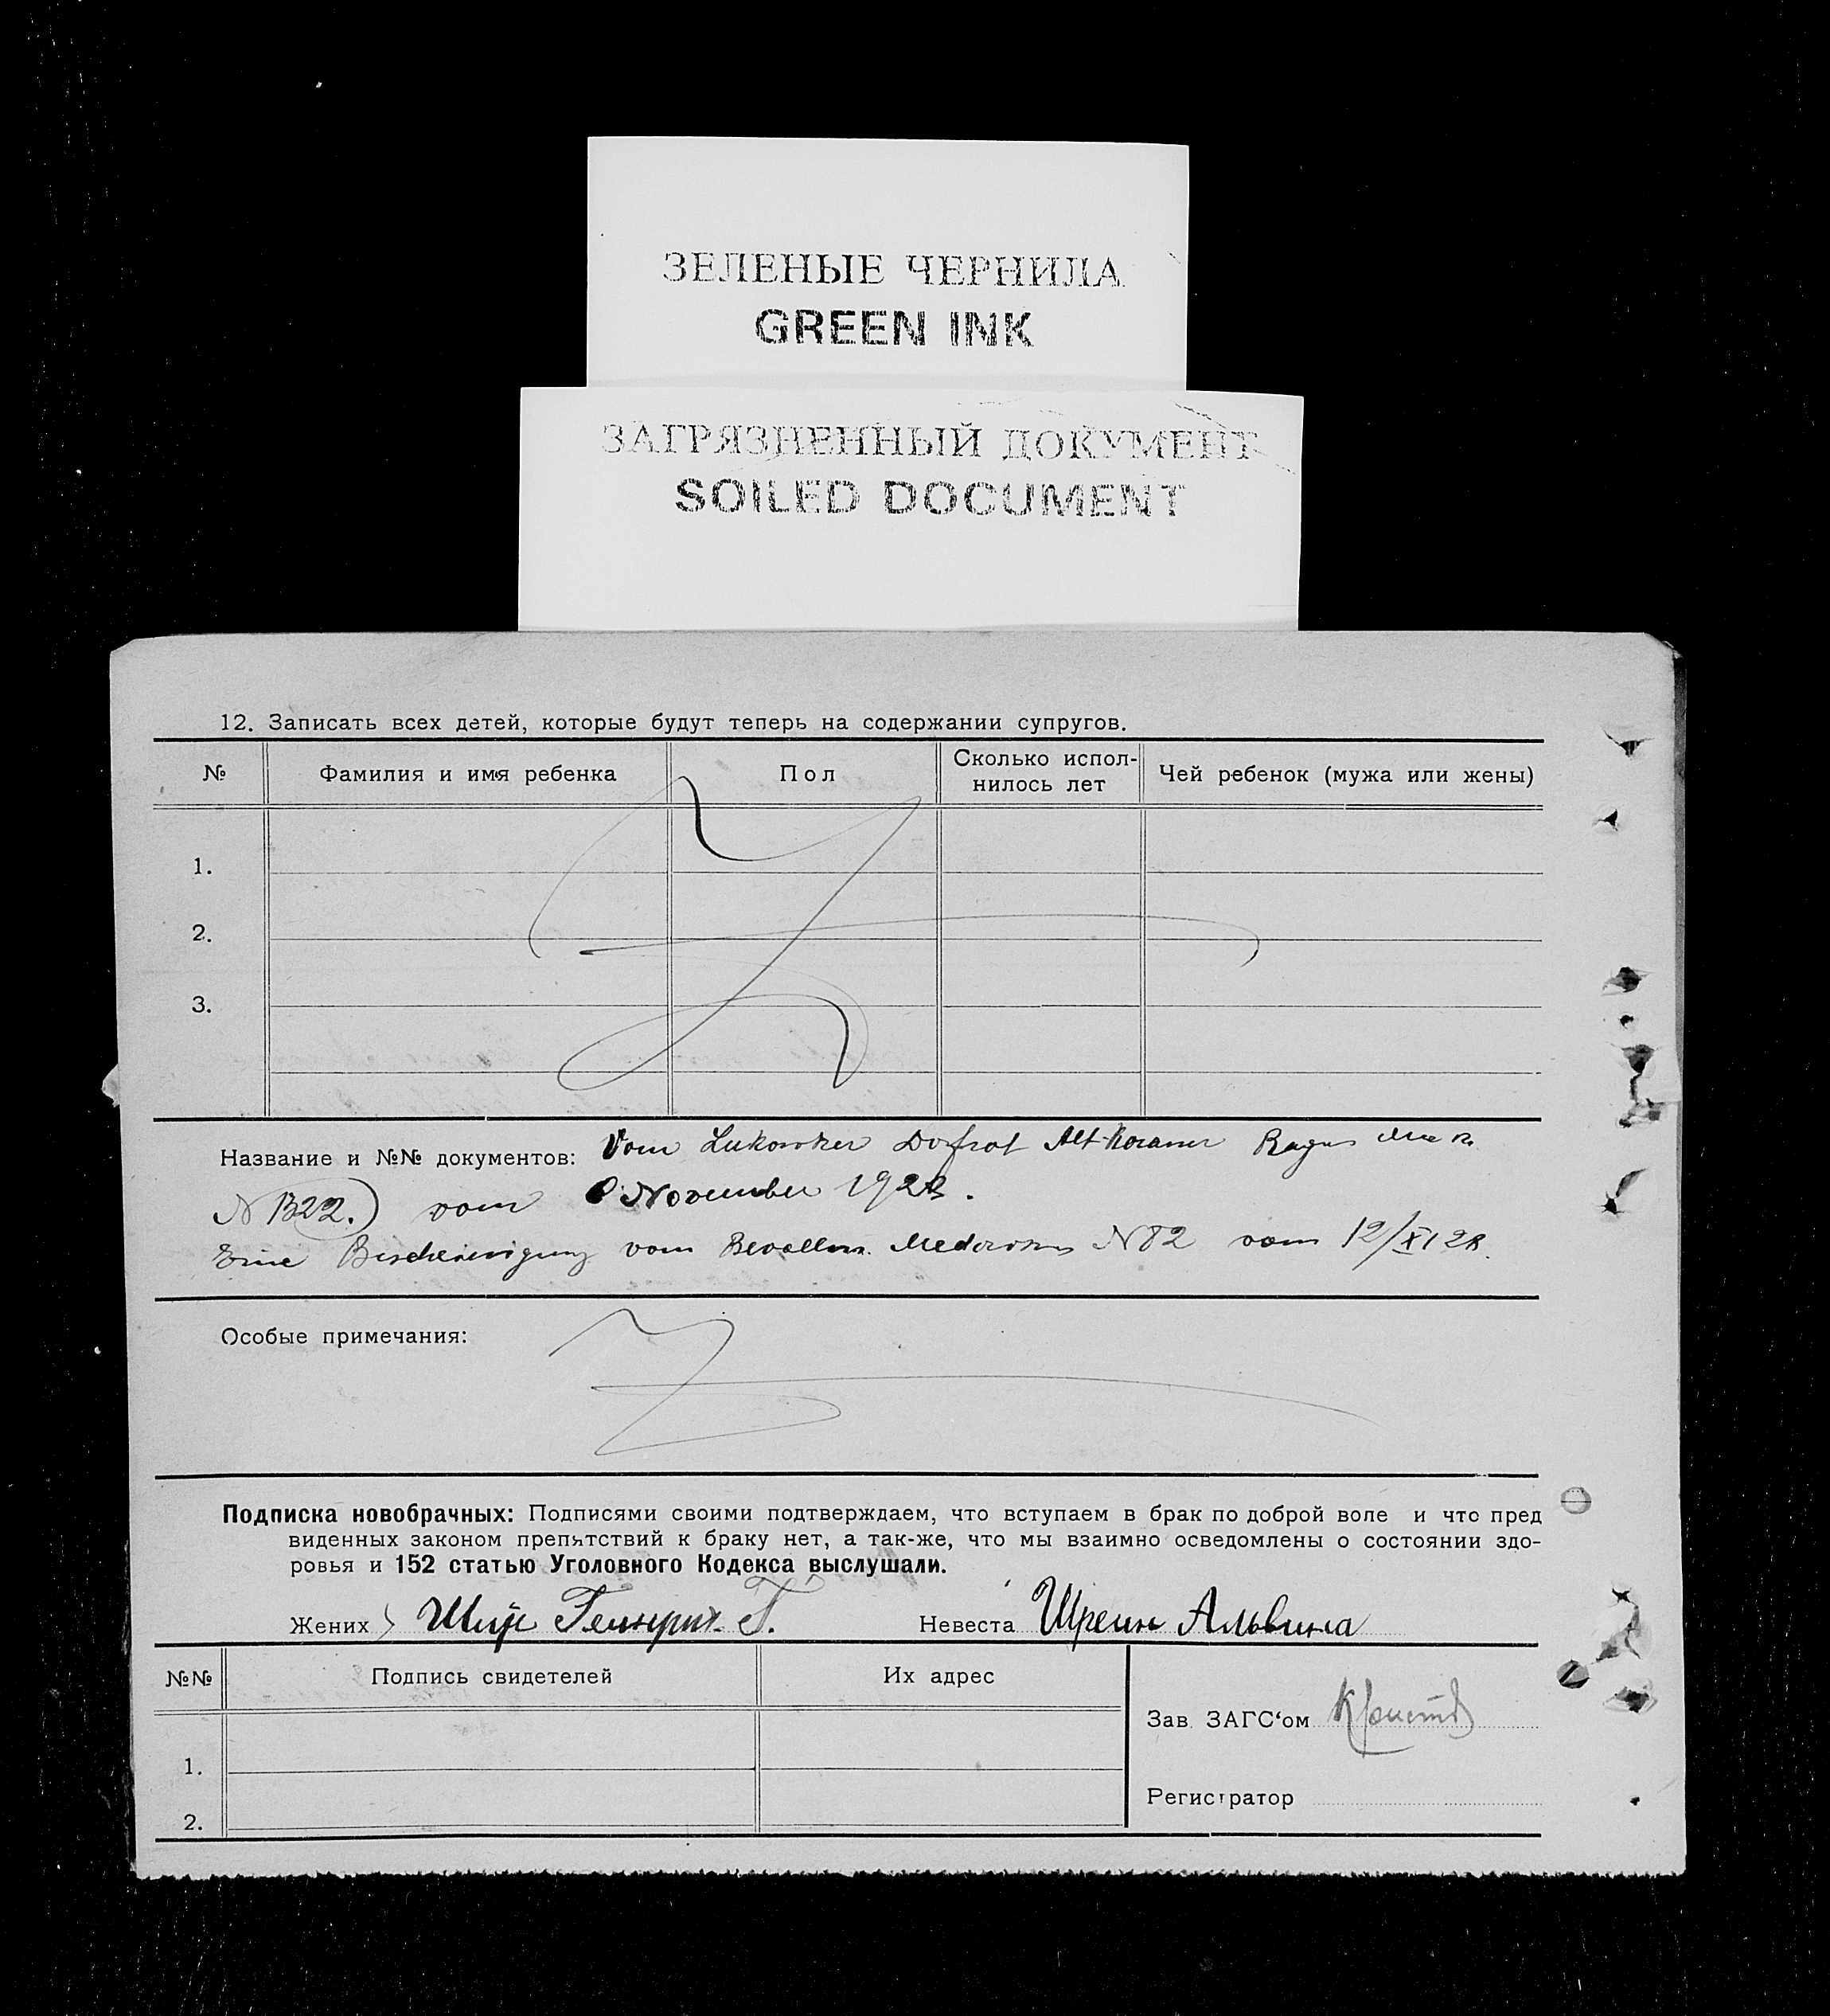 ЗЕЛЕНЫЕ ЧЕРНИЛА
GREEN INK
ЗАГРЯЗНЕННЫЙ ДОКУМЕНТ
SOILED DOCUMENT
12. Записать всех детей, которые будут теперь на содержании супругов.
№ Фамилия и имя ребенка Пол Сколько испол-нилось лет Чей ребенок (мужа или жены)
1.
2.
3.
Название и №№ документов: Vom Alt
N vom November 1928.
Eine vom N 82 vom 12/XI 28.
Особые примечания:
Подписка новобрачных: Подписями своими подтверждаем, что вступаем в брак по доброй воле и что пред
виденных законом препятствий к браку нет, а так-же, что мы взаимно осведомлены о состоянии здо-
ровья и 152 статью Уголовного Кодекса выслушали.
Жених Гейнрих Г. Невеста Шреин Альвина
№№ Подпись свидетелей Их адрес
Зав. ЗАГС‘ом
1.
Регистратор
2.